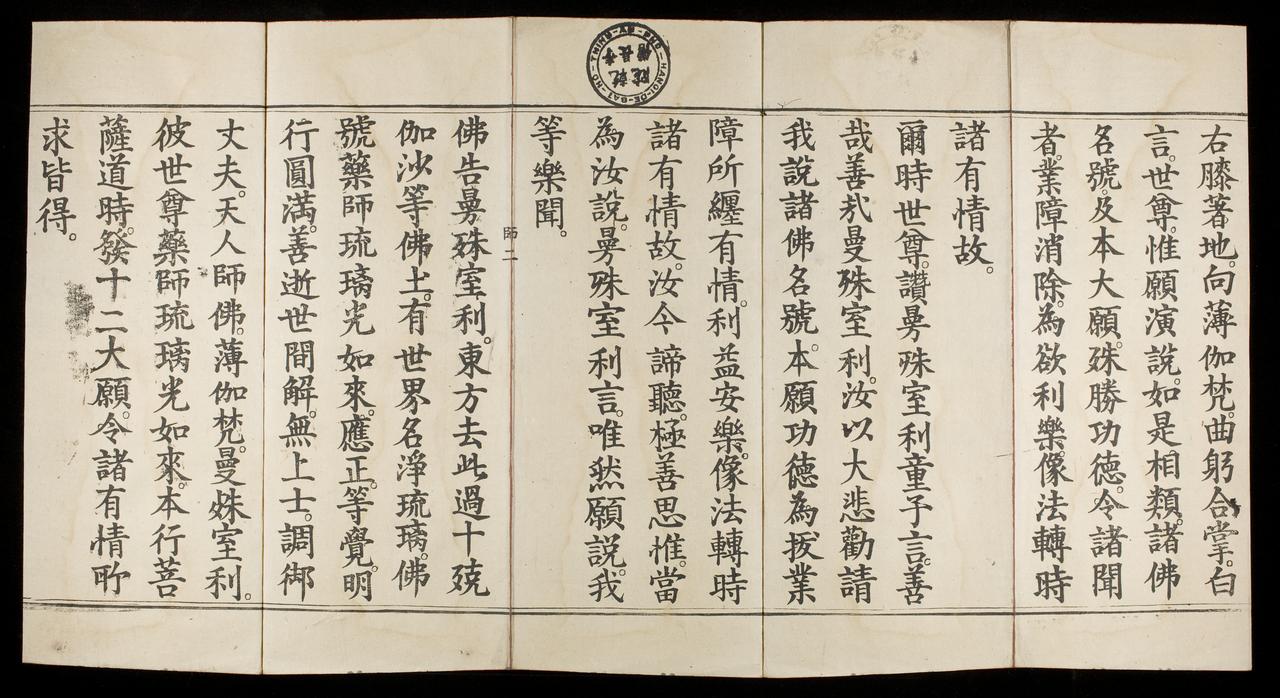 右膝著地。向薄伽梵。曲躬合掌。白
言。世尊。惟願演說。如是相類。諸佛
名號。及本大願。殊勝功德。令諸聞
者。業障消除。為欲利樂。像法轉時
諸有情故。
爾時世尊。讚曼殊室利童子言。善
哉善哉曼殊室利。汝以大悲勸請
我說諸佛名號。本願功德為拔業
障所纏有情。利益安樂。像法轉時
諸有情故。汝今諦聽。極善思惟。當
為汝說。曼殊室利言。唯然願說。我
等樂聞。
師二
佛告曼殊室利。東方去此過十殑
伽沙等佛土。有世界名淨琉璃。佛
號藥師琉璃光如來。應正。等覺。明
行圓滿。善逝世間解。無上士。調御
丈夫。天人師佛。薄伽梵。曼姝室利。
彼世尊藥師琉璃光如來。本行菩
薩道時。發十二大願。令諸有情所
求皆得。